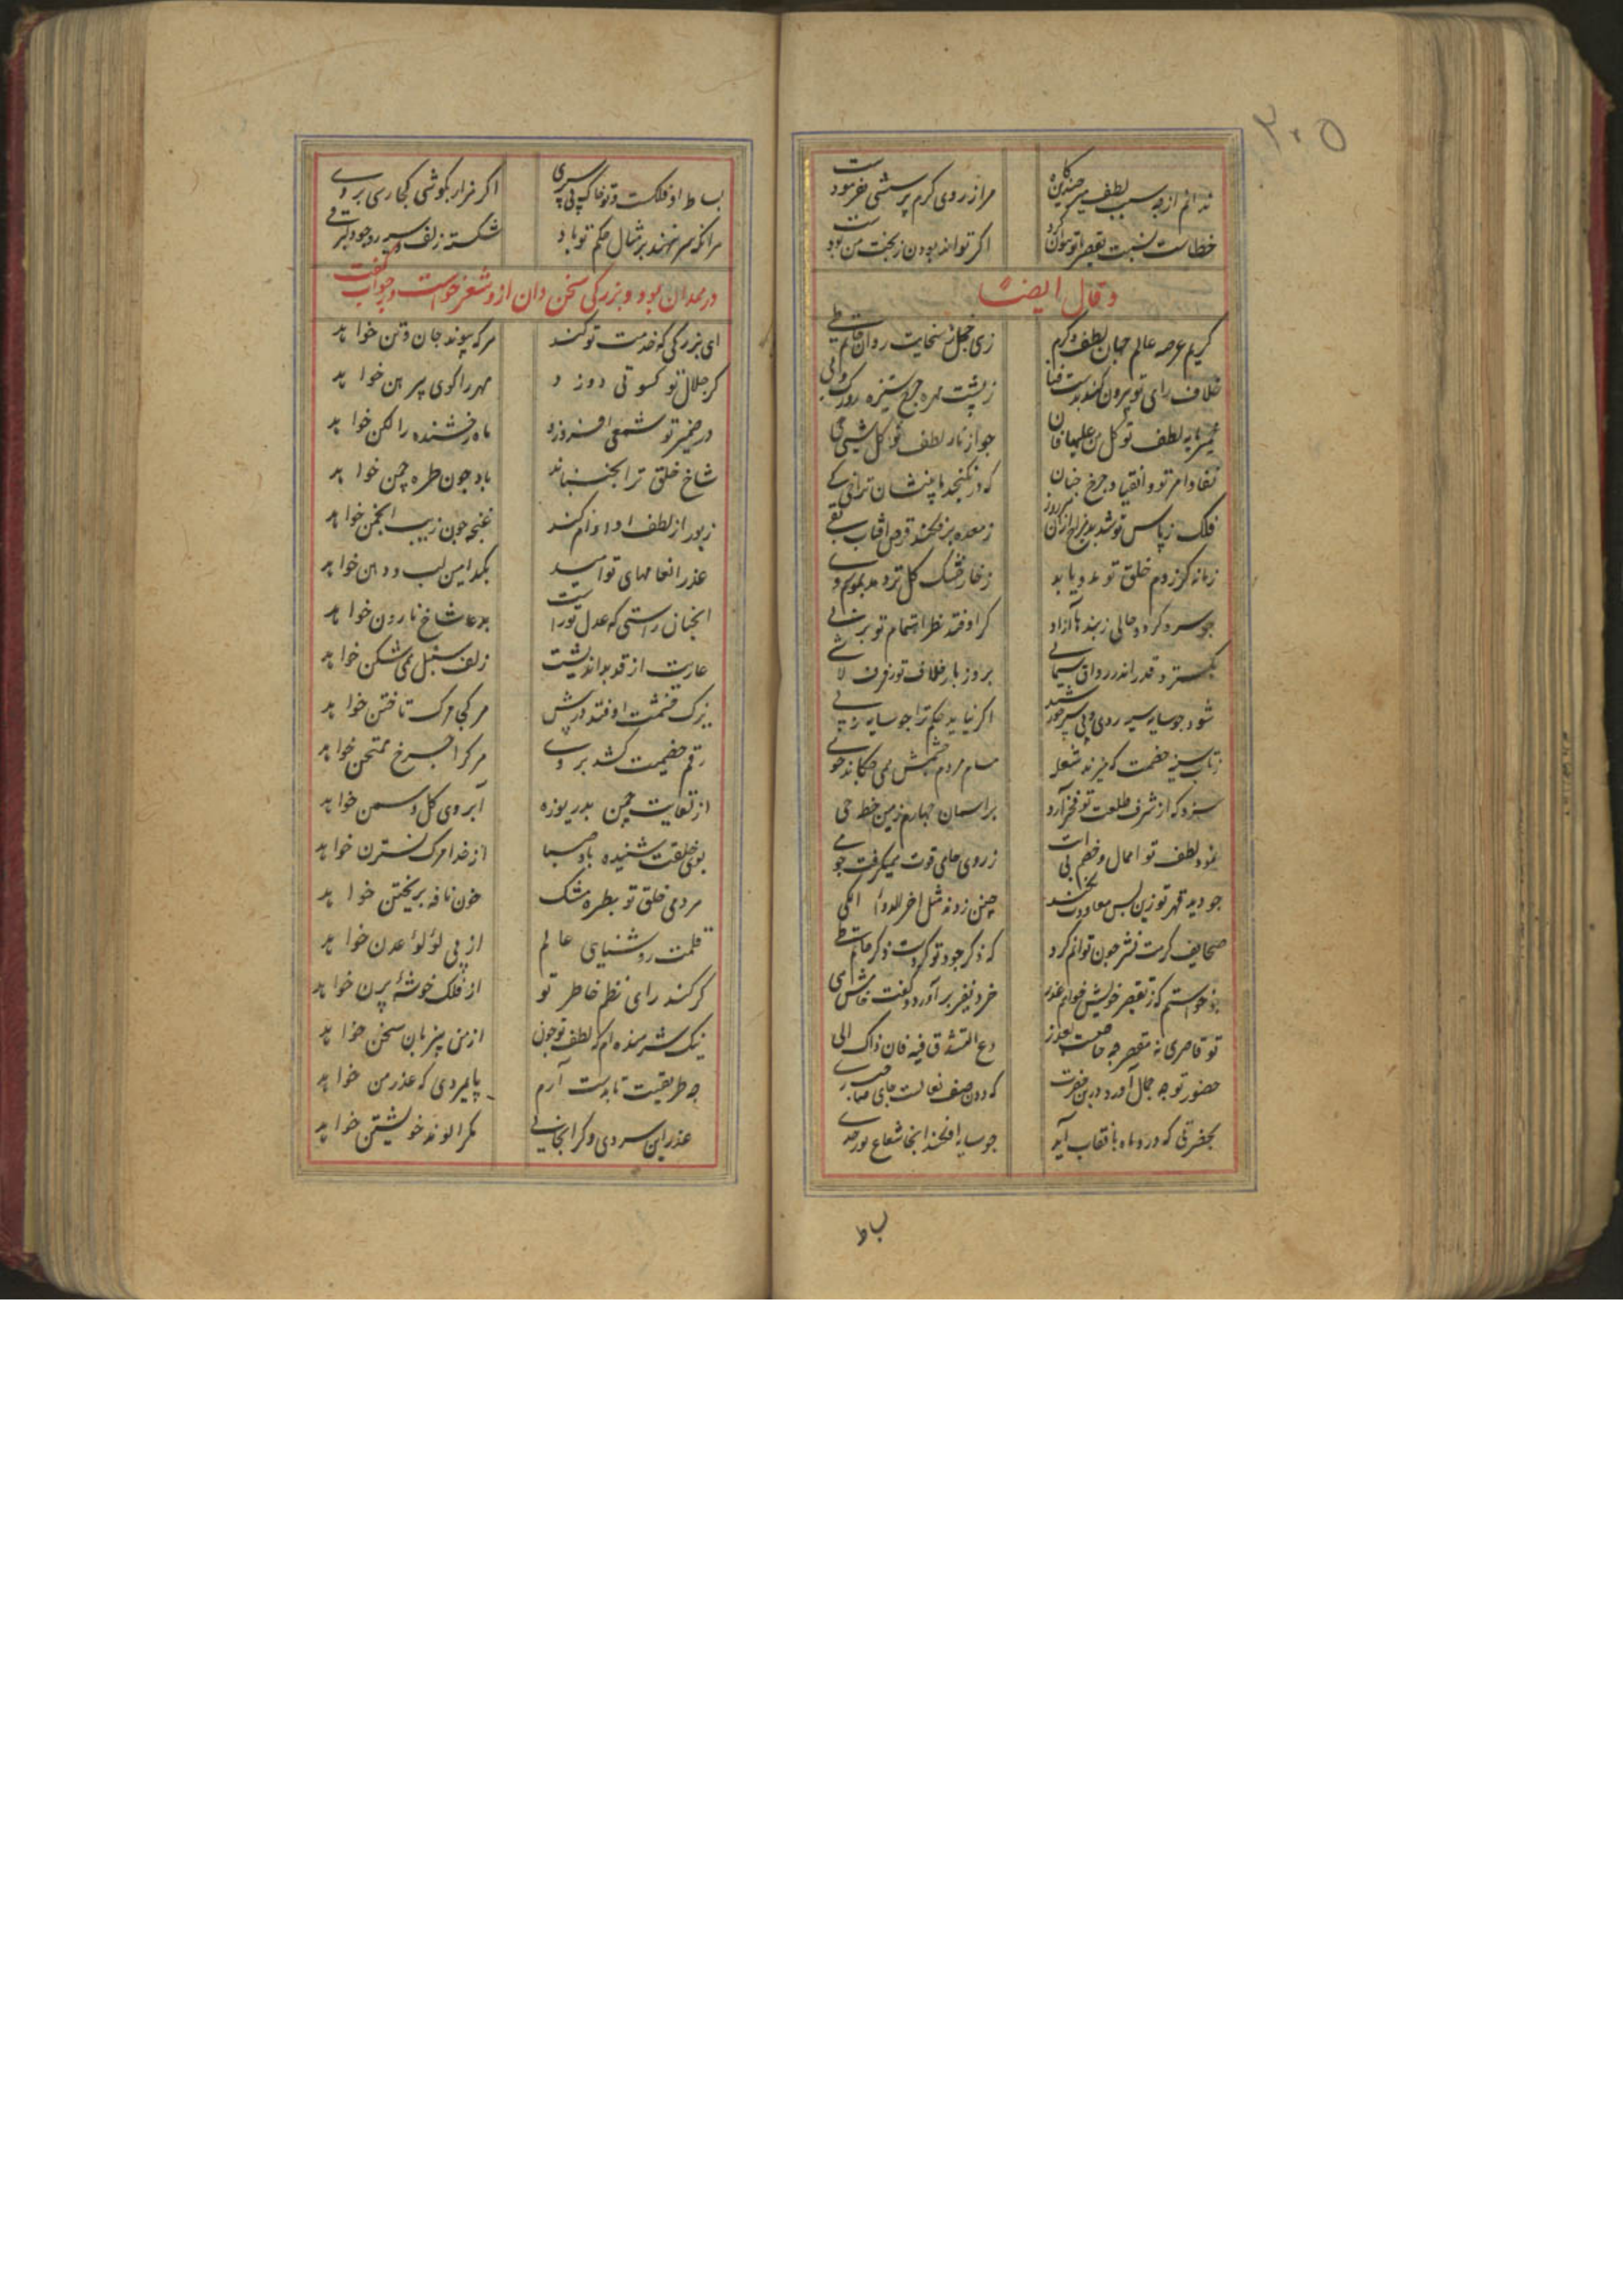 ۳۰۵
ندانم از چه سبب لطف
مرا ز روی کرم پرسشی نفرمودست
خطاست نسبت تقصیر
اگر تواند بودن ز بخت من بودست
و قال ایضا
کریم عرصه عالم جهان لطف و کرم
زهی خجل ز سخایت روان حاتم طی
خلاف رای تو بیرون کند
ز پشت مهره چرخ ستیزه رو رک و پی
لطف تو کل من علیها فان
جواز نار لطف تو کل شیء
نفاذ امر تو و انقیاد چرخ چنان
که در نکنجد
فلک ز پاس تو شد
ز معده قرص آفتاب بقی
زمانه کر ز دم خلق تو مدد یابد
ز خار خشک کل تر دمد بموسم دی
چو سرو کردد حالی ز بندها آزاد
کر اوفتد نظر اهتمام تو بر نی
بکسترد قدر اندر رواق
بروز بار خلاف تو
شود چو سایه سیه روی و پی سپر خورشید
اگر نیاید حکم ترا چو سایه ز پی
ز تاب سینه خصمت که میزند شعله
مسام مردم چشمش همی چکاند خوی
سزد که از شرف طلعت تو فخر آرد
بر آسمان چهارم زمین خطه جی
نمود لطف تو اهمال و خصم بی
ز روی حلم قوت میکرفت
چو دید قهر تو زین پس معاودت
چنین زدند مثل آخر الدواء الکی
صحایف کرمت نشر چون توانم کرد
که ذکر جود تو کردست ذکر حاتم طی
بخواستم که ز تقصیر خویش خواهم عذر
خرد نفیر بر آورد و گفت خامش
تو قاصری نه مقصر چه حاجت
دع التشدق فیه فان ذاک الی
حضور تو چه جمال آورد در ین حضرت
که دون صف نعالست جای
بحضرتی که درو ماه با نقاب آید
چو سایه افکند اینجا شعاع نور
بساط
بساط او فلکست و تو خاک پی سپری
اگر هزار بکوشی کجا رسی بر وی
هر آنکه سر ننهد بر مثال حکم تو باد
شکسته زلف سیه رو چو دلبر
در همدان بود و بزرگی سخن دان ازو شعر خواست در جواب گفت
ای بزرگی که خدمت تو کند
هر که پیوند جان و تن خواهد
گر جلال تو کسوتی دوزد
مهر را کوی پیرهن خواهد
در ضمیر تو شمعی افروزد
ماه رخشنده را لگن خواهد
شاخ خلق ترا بجنباند
باد چون طره چمن خواهد
زیور از لطف او وام کند
غنچه چون زیب انجمن خواهد
عذر انعامهای تو امید
بکدامین لب و دهن خواهد
آنچنان راستی که عدل توراست
بدعا شاخ نارون خواهد
عاریت از قد بداندیشت
زلف سنبل همی شکن خواهد
بزرگ قسمت اوفتد درپیش
هر کجا مرک تاختن خواهد
رقم خصمیت کشد بر وی
هر کرا چرخ ممتحن خواهد
از لقایت چمن بدریوزه
آبروی گل و سمن خواهد
بوی خلقت شنیده باد صبا
از خدا مرک نسترن خواهد
مردمی خلق تو بطره مشک
خون نافه بریختن خواهد
قلمت روشنیایی عالم
از پی لؤلؤ عدن خواهد
گر کند رای نظم خاطر تو
از فلک خوشهٔ پرن خواهد
نیک شرمنده ام که لطف تو چون
از من بیزبان سخن خواهد
چه طریقست تا بدست آرم
پایمردی که عذر من خواهد
عذر این سردی و گرانجانی
مگر الوند خویشتن خواهد